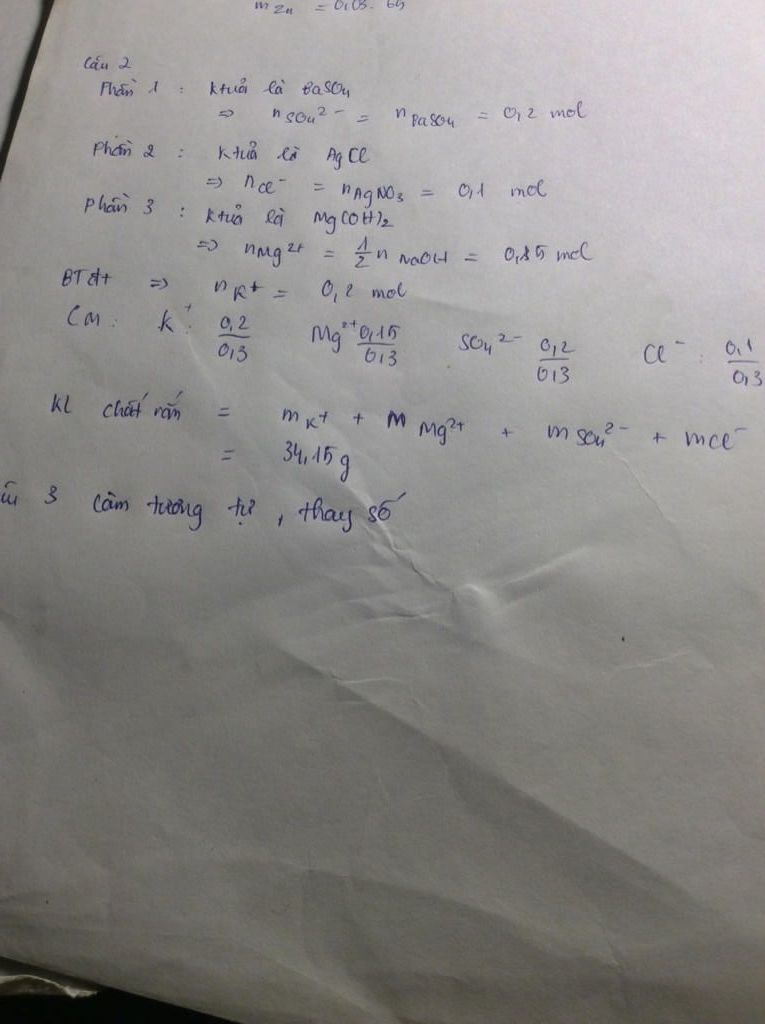 m Zn = 0,05. 65
Câu 2
Phần 1 : ktủa là BaSO4
=> n SO4 2- = n BaSO4 = 0,2 mol
Phần 2 : ktủa là AgCl
=> n Cl- = n AgNO3 = 0,1 mol
Phần 3 : ktủa là Mg(OH)2
=> n Mg2+ = 1/2 n NaOH = 0,15 mol
BTĐt => n K+ = 0,2 mol
CM : K+ : 0,2/0,3 Mg2+ 0,15/0,3 SO4 2- 0,2/0,3 Cl- : 0,1/0,3
KL chất rắn = m K+ + m Mg2+ + m SO4 2- + mCl-
= 34,15 g
3 làm tương tự , thay số